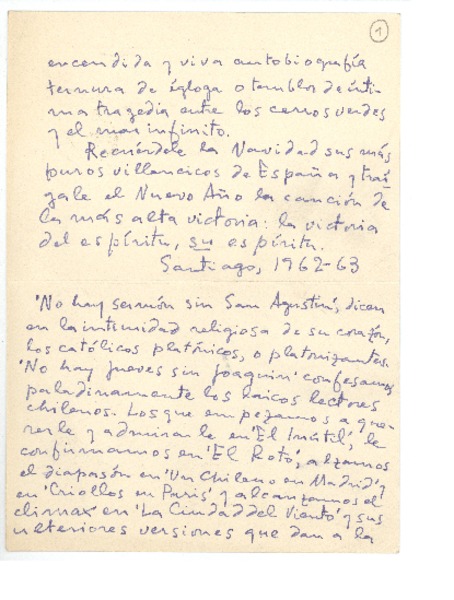 1
encendida y viva autobiografía
ternura de égloga o temblor de ínti-
ma tragedia entre los cerros verdes
y el mar infinito.
Recuérdele la Navidad sus más
puros villancicos de España y trái-
gale el Nuevo Año la canción de
la más alta victoria: la victoria
del espíritu, su espíritu.
Santiago, 1962-63
'No hay sermón sin San Agustín', dicen
en la intimidad religiosa de su corazón,
los católicos platónicos, o platonizantes.
'No hay jueves sin Joaquín' confesamos
paladinamente los laicos lectores
chilenos. Los que empezamos a que-
rerle y admirarle en 'El Inútil', le
confirmamos en 'El Roto', alzamos
el diapasón en 'Un Chileno en Madrid' y
en 'Criollos en París' y alcanzamos el
climax en 'La Ciudad del Viento' y sus
ulteriores versiones que dan a la